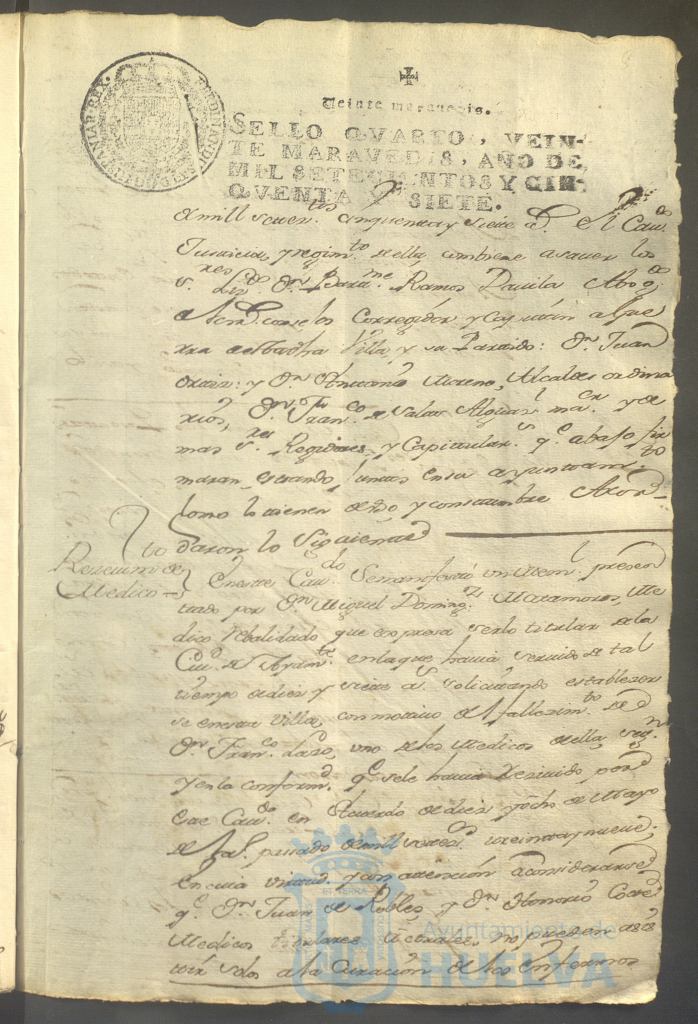 Veinte maravedis.
SELLO QVARTO, VEIN-
TE MARAVEDIS, AÑO DE
MIL SETECIENTOS Y CIN-
QVENTA Y SIETE.
de mill setez.tos cinquenta y siete a.s El Cav.do
Justicia y regim.to de ella, combiene a saver los
s.res Liz.do D.n Bar.me Ramos Davila Abog.do
de los R. consejos Corregidor y Capitan a gue
rra de esta dha Villa y su Partido: D.n Juan
y D.n Antonio Moreno, Alcaldes ordina
rios, D.n Fran.co de Salas Alguaz.l ma.or y de
mas s.res Regidores y Capitular.s q.e abajo fir
maran, estando juntos en su ayuntam.to
como lo tienen de uso y constumbre Acor-
daron lo siguiente
Reseuim.to de
Medico
En este Cav.do Se manifestó un Mem.l presen
tado por D.n Miguel Doming.z Matamoros, Me
dico rebalidado que expresa serlo titular de la
Ciu.d de Ayam.te en la que havia servido de tal
tiempo de diez y siete a.s solicitando establezer
se en esta Villa, con motivo del fallezim.to de
D.n Fran.co Lazo, uno de los Medicos de ella, seg.n
y en la conform.d q.e se le havia reseuido por
este Cav.do en Acuerdo de diez y ocho de Mayo
de pasado de mill setez.s treinta y nueve;
En cuia virtud y con atención a considerarse
q.e D.n Juan de Robles y D.n Honorio Corte
Medicos titulares actuales, no pueden asis
tir solos a la Curacion de los enfermos
Ayuntamiento de
HUELVA